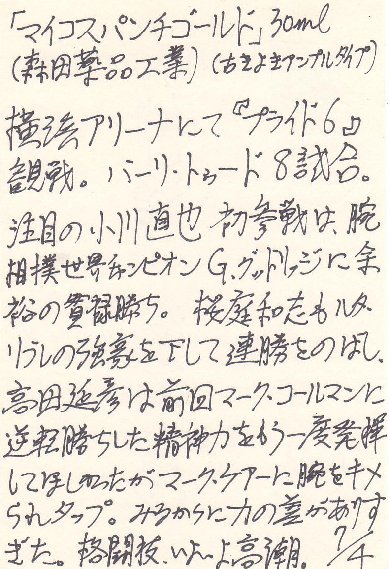 「マイコスパンチゴールド」30ml
(森田薬品工業)(古きよきアンプルタイプ)
横浜アリーナにて『プライド6』
観戦。バーリ・トゥード8試合。
注目の小川直也初参戦は、腕
相撲世界チャンピオンG.グッドリッジに余
裕の貫禄勝ち。桜庭和志もルタ・
リブレの強豪を下して連勝をのばし、
高田延彦は前回マーク・コールマンに
逆転勝ちした精神力をもう一度発揮
してほしかったがマーク・ケアーに腕をキメ
られタップ。みるからに力の差がありす
ぎた。格闘技、いよいよ高潮。7/4